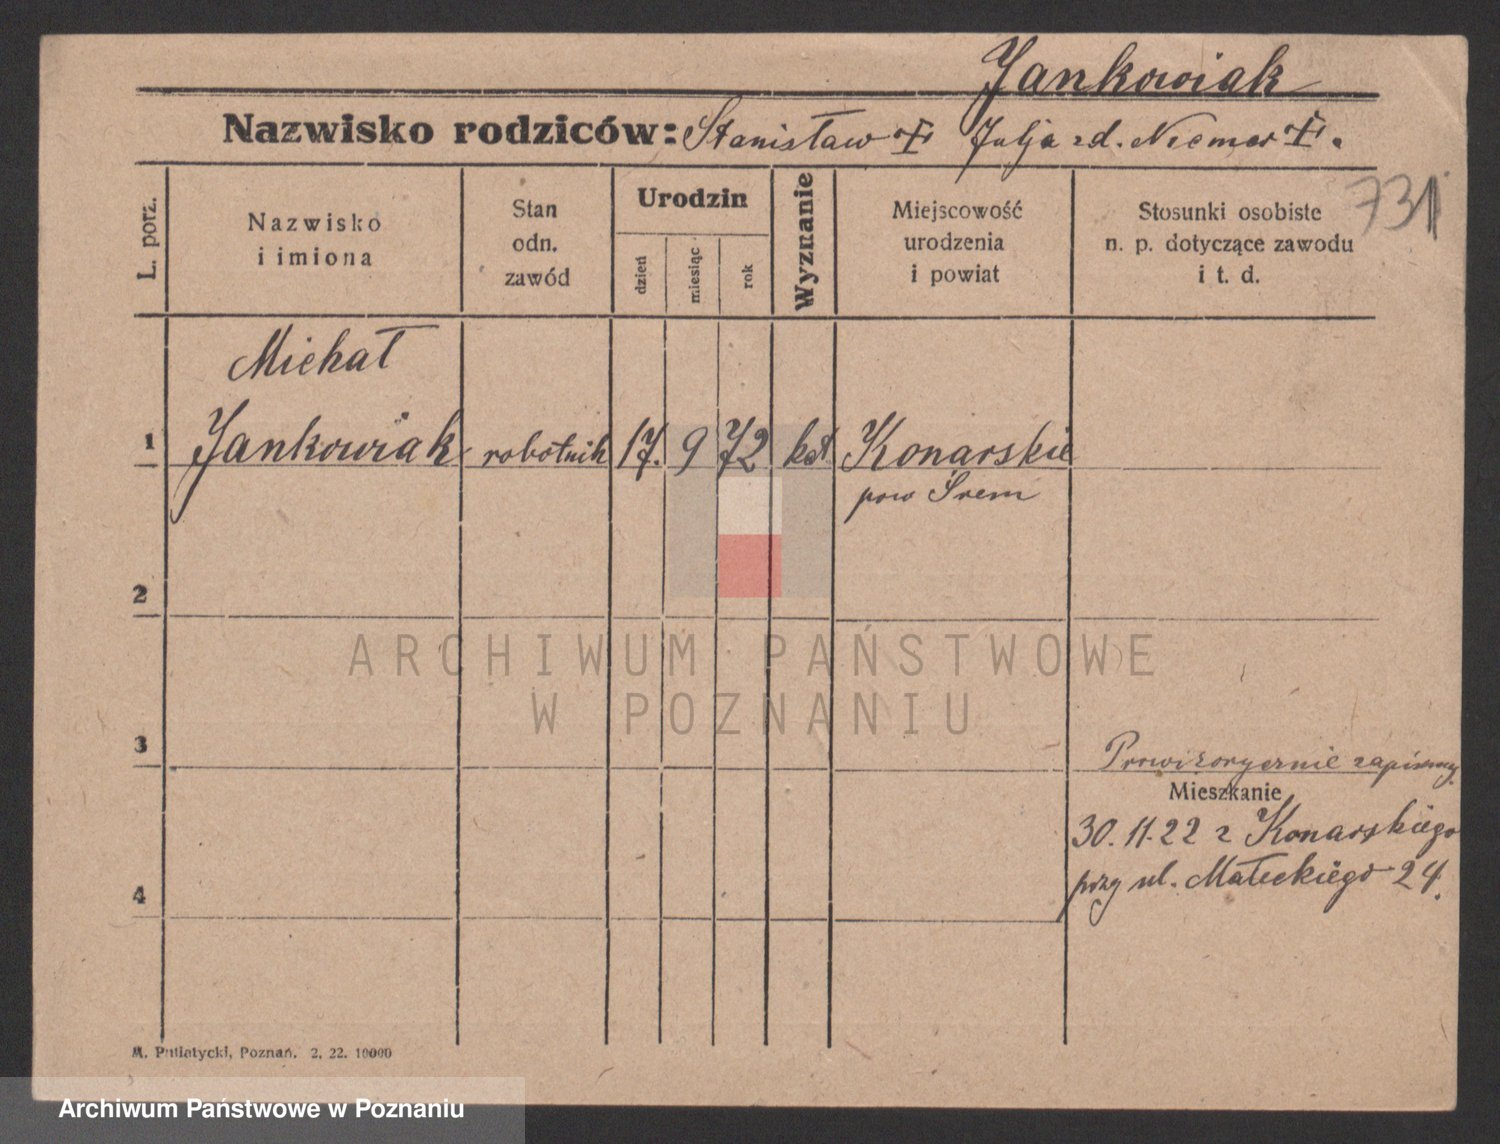 Jankowiak
Nazwisko rodziców: Stanisław ✝ Julja zd. Niemer ✝.
731
L. porz.
Nazwisko
i imiona
Stan
odn.
zawód
Urodzin
dzień
miesiąc
rok
Wyznanie
Miejscowość
urodzenia
i powiat
Stosunki osobiste
n. p. dotyczące zawodu
i t. d.
Michał
1 Jankowiak robotnik 17. 9 72 kat Konarskie
pow Śrem
2
ARCHIWUM PAŃSTWOWE
W POZNANIU
3
Prowizorycznie zapisany
Mieszkanie
30.11.22 z Konarskiego
przy ul. Małeckiego 24.
4
M. Putiatycki, Poznań. 2. 22. 10000
Archiwum Państwowe w Poznaniu